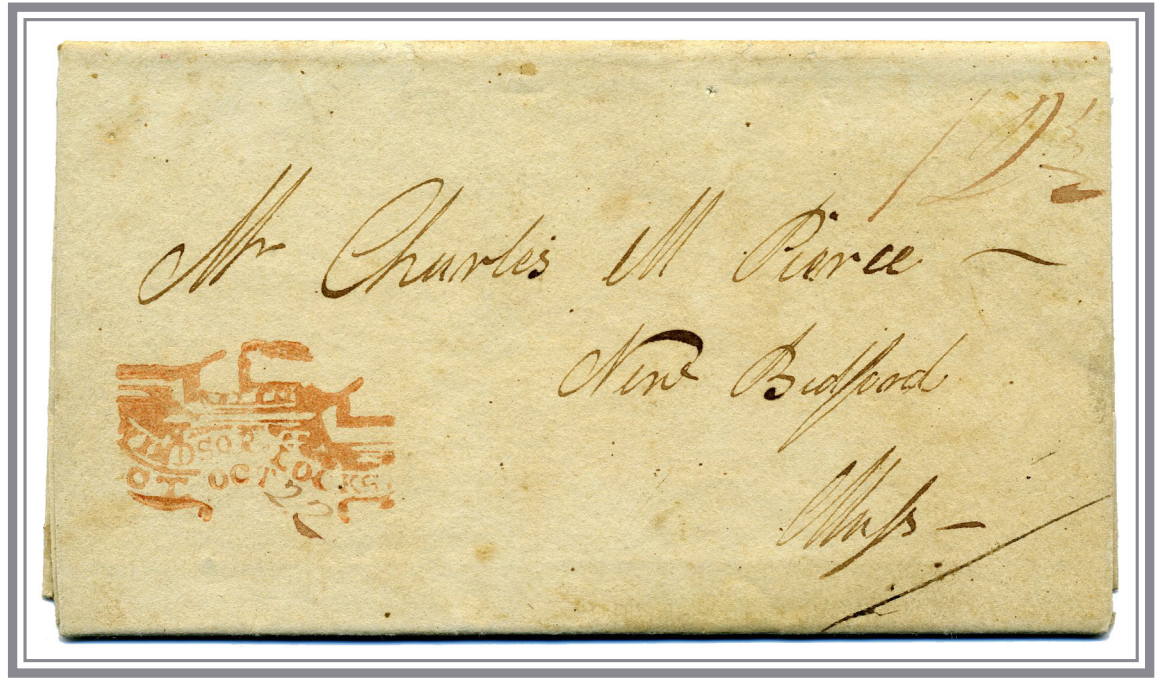 12½
Mr Charles M Pierce —
New Bedford
Mass —
WINDSOR LOCKS
CT OCT 22